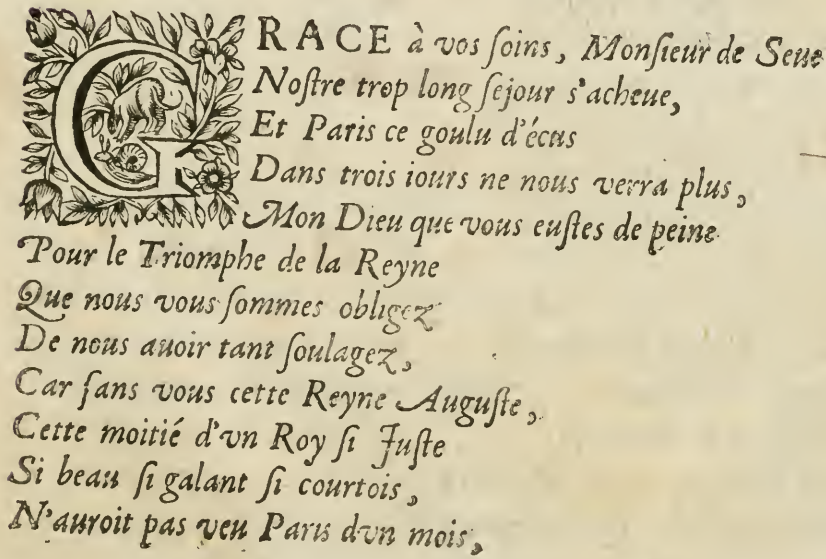 GRACE à vos ſoins, Monſieur de Seue
Noſtre trop long ſejour s'acheue,
Et Paris ce goulu d'écus
Dans trois iours ne nous verra plus,
Mon Dieu que vous euſtes de peine
Pour le Triomphe de la Reyne
Que nous vous ſommes obligez
De nous auoir tant ſoulagez,
Car ſans vous cette Reyne Auguſte,
Cette moitié d'vn Roy ſi Juſte
Si beau ſi galant ſi courtois,
N'auroit pas veu Paris d'vn mois,